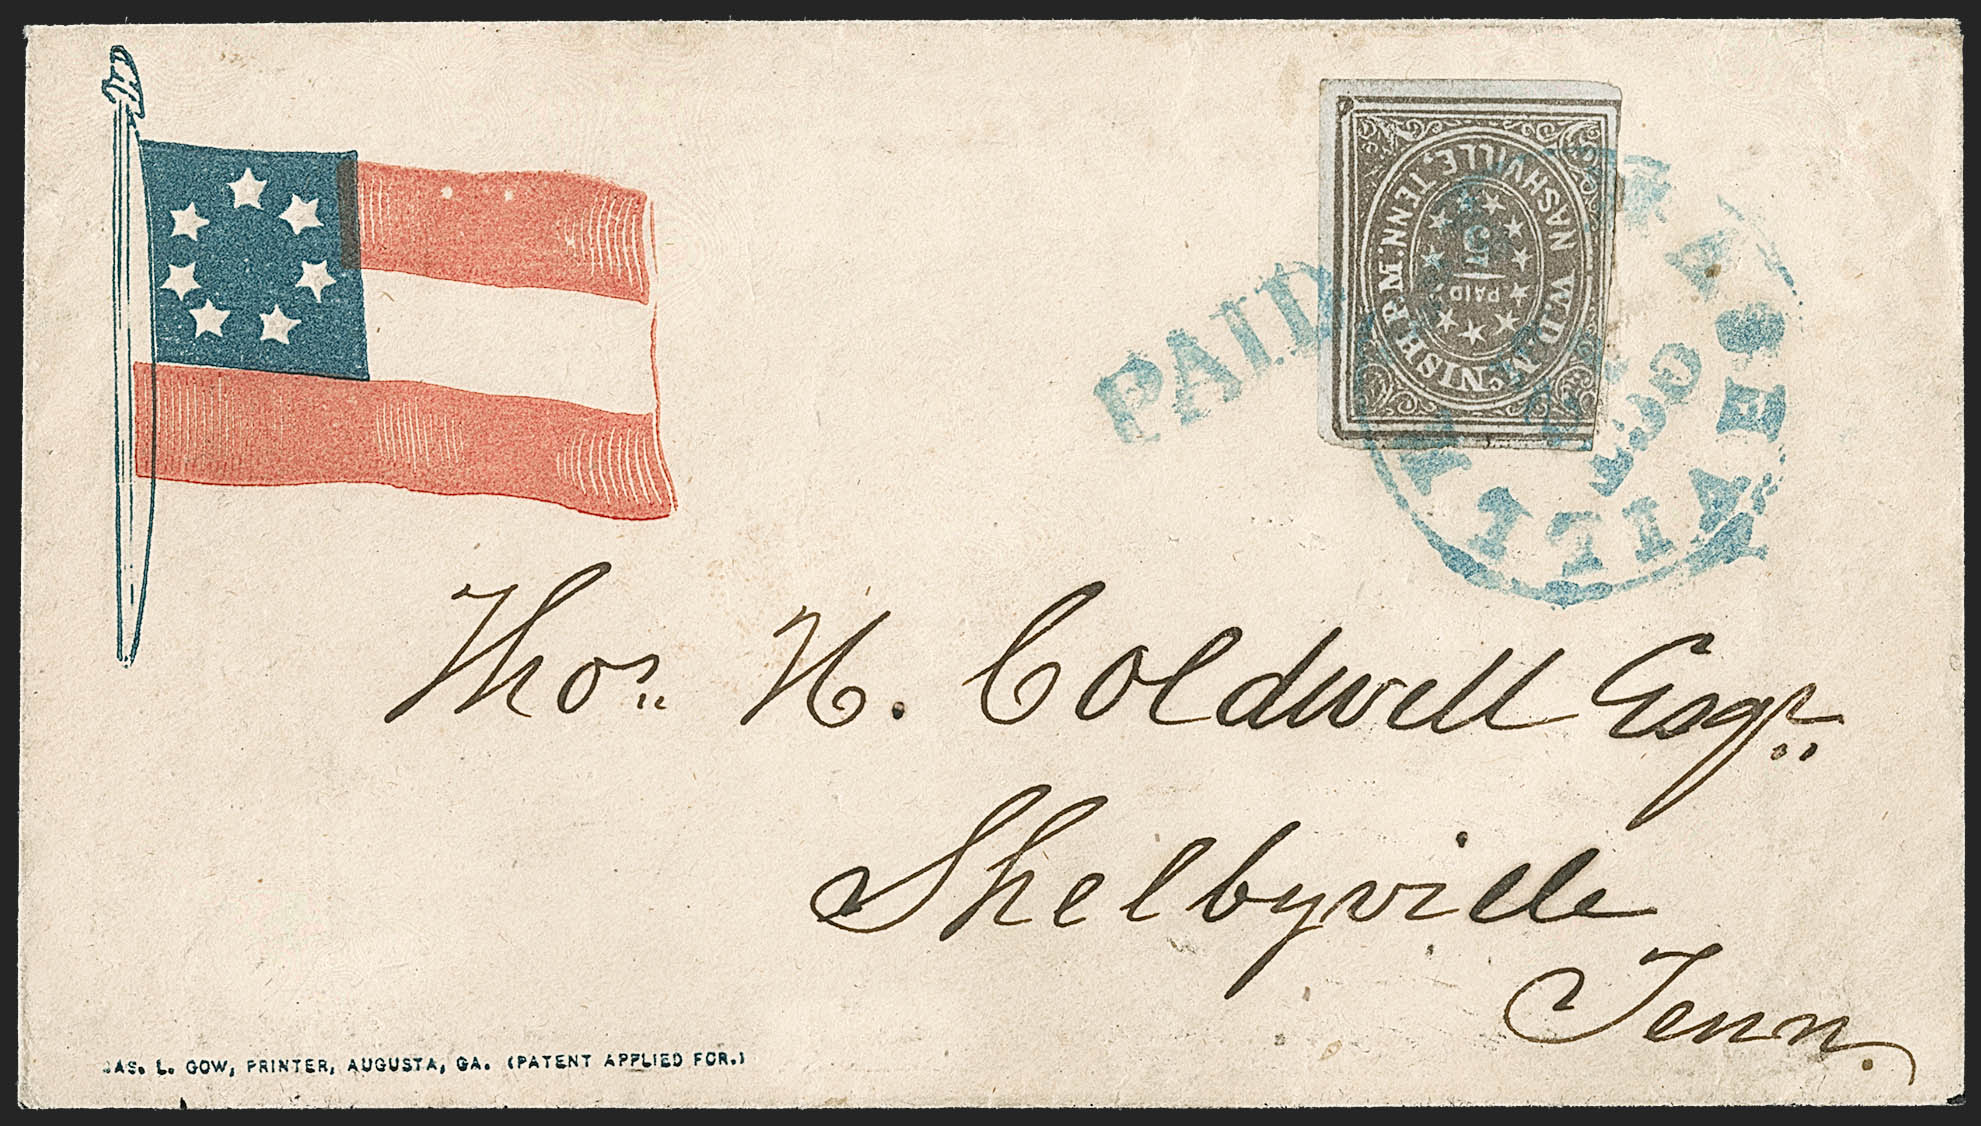 PAID
W.D. McNISH. P.M.
NASHVILLE, TENN.
5
PAID
NASHVILLE
OCT
Thos. H. Coldwell Esqr.
Shelbyville
Tenn.
JAS. L. GOW, PRINTER, AUGUSTA, GA. (PATENT APPLIED FOR.)